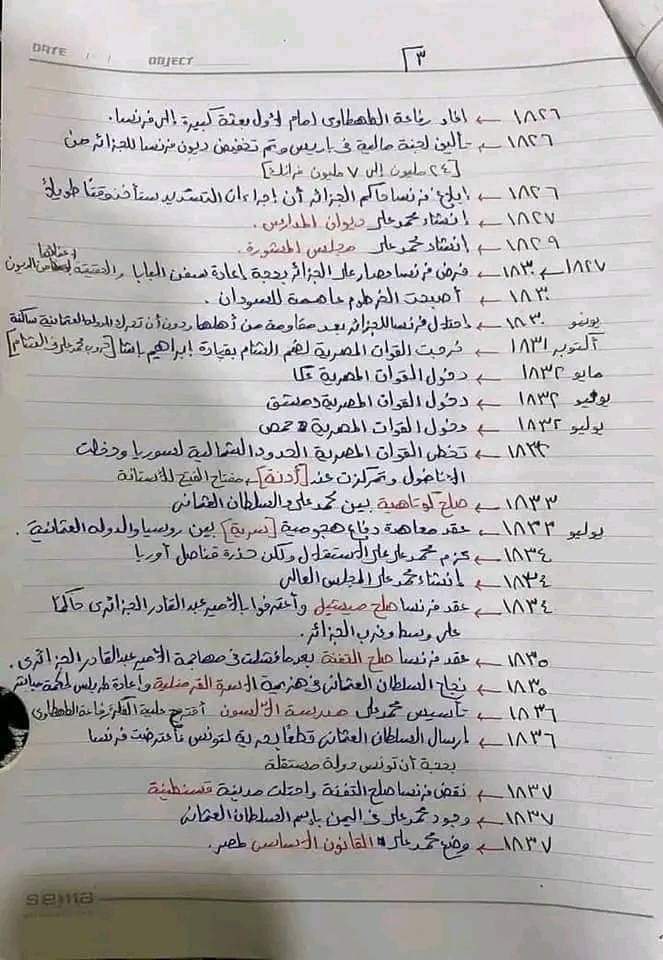 DATE / / OBJECT
٣
١٨٢٦ ← ايفاد رفاعة الطهطاوى إمام لأول بعثة كبيرة إلى فرنسا.
١٨٢٦ ← تأليف لجنة مالية فى باريس وتم تخفيض ديون فرنسا للجزائر من
[٢٤ مليون إلى ٧ مليون فرانك]
١٨٢٦ ← إبلاغ فرنسا حاكم الجزائر أن إجراءات التسديد ستأخذ وقتًا طويلاً
١٨٢٧ ← إنشاء محمد على ديوان المدارس.
١٨٢٩ ← إنشاء محمد على مجلس المشورة.
١٨٢٧ ← ١٨٣٠ ← فرض فرنسا حصار على الجزائر بحجة إعادة سفن البابا والحقيقة من الديون
١٨٣٠ ← أصبحت الخرطوم عاصمة للسودان.
يونيو ١٨٣٠ ← احتلال فرنسا للجزائر بعد مقاومة من أهلها ودون أن تحرك الدولة العثمانية ساكنة
أكتوبر ١٨٣١ ← خرجت القوات المصرية لضم الشام بقيادة إبراهيم باشا [حروب محمد على فى الشام]
مايو ١٨٣٢ ← دخول القوات المصرية عكا
يونيو ١٨٣٢ ← دخول القوات المصرية دمشق
يوليو ١٨٣٢ ← دخول القوات المصرية حمص
١٨٣٣ ← تخطى القوات المصرية الحدود الشمالية لسوريا ودخلت
الأناضول وتمركزت عند [أدنة] ← مفتاح الفتح للأستانة
١٨٣٣ ← صلح كوتاهية بين محمد على والسلطان العثمانى
يوليو ١٨٣٣ ← عقد معاهدة دفاع هجومية [سرية] بين روسيا والدولة العثمانية.
١٨٣٤ ← عزم محمد على على الاستقلال ولكن حذرة قناصل أوربا
١٨٣٤ ← إنشاء محمد على المجلس العالى
١٨٣٤ ← عقد فرنسا صلح ميشيل وأعترفوا بالأمير عبد القادر الجزائرى حاكمًا
على وسط وغرب الجزائر.
١٨٣٥ ← عقد فرنسا صلح التفنة بعد ما فشلت فى مهاجمة الأمير عبد القادر الجزائرى.
١٨٣٥ ← نجاح السلطان العثمانى فى هزيمة الأسرة القرمنلية وإعادة طرابلس لحكمة مباشر
١٨٣٦ ← تأسيس محمد على مدرسة الألسون أقترح علية الفكرة رفاعة الطهطاوى
١٨٣٦ ← إرسال السلطان العثمانى قطعًا بحرية لتونس فأعترضت فرنسا
بحجة أن تونس دولة مستقلة
١٨٣٧ ← نقض فرنسا صلح التفنة واحتلت مدينة قسنطينة
١٨٣٧ ← وجود محمد على فى اليمن باسم السلطان العثمانى
١٨٣٧ ← وضع محمد على القانون الأساسى لمصر.
sema